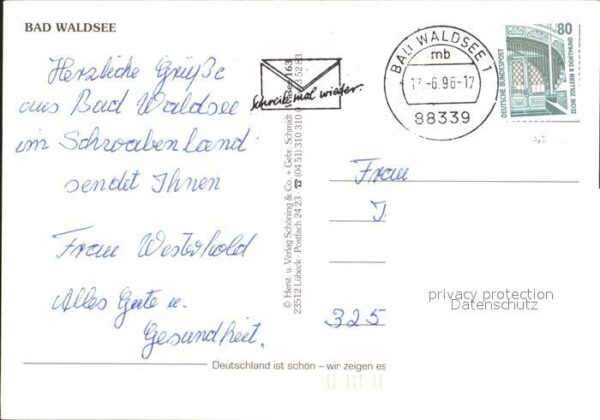 BAD WALDSEE
Herzliche Grüße
aus Bad Waldsee
im Schwabenland
sendet Ihnen
Frau Westerhold
Alles Gute u.
Gesundheit.
Schreib mal wieder.
BAD WALDSEE 1
mb
-6.96-17
88339
80
DEUTSCHE BUNDESPOST
ZECHE ZOLLERN II DORTMUND
© Herst. u. Verlag Schöning & Co. + Gebr. Schmidt
23512 Lübeck · Postfach 24 23 · ☎ (04 51) 310 310
Frau
J.
325
privacy protection
Datenschutz
Deutschland ist schön – wir zeigen es